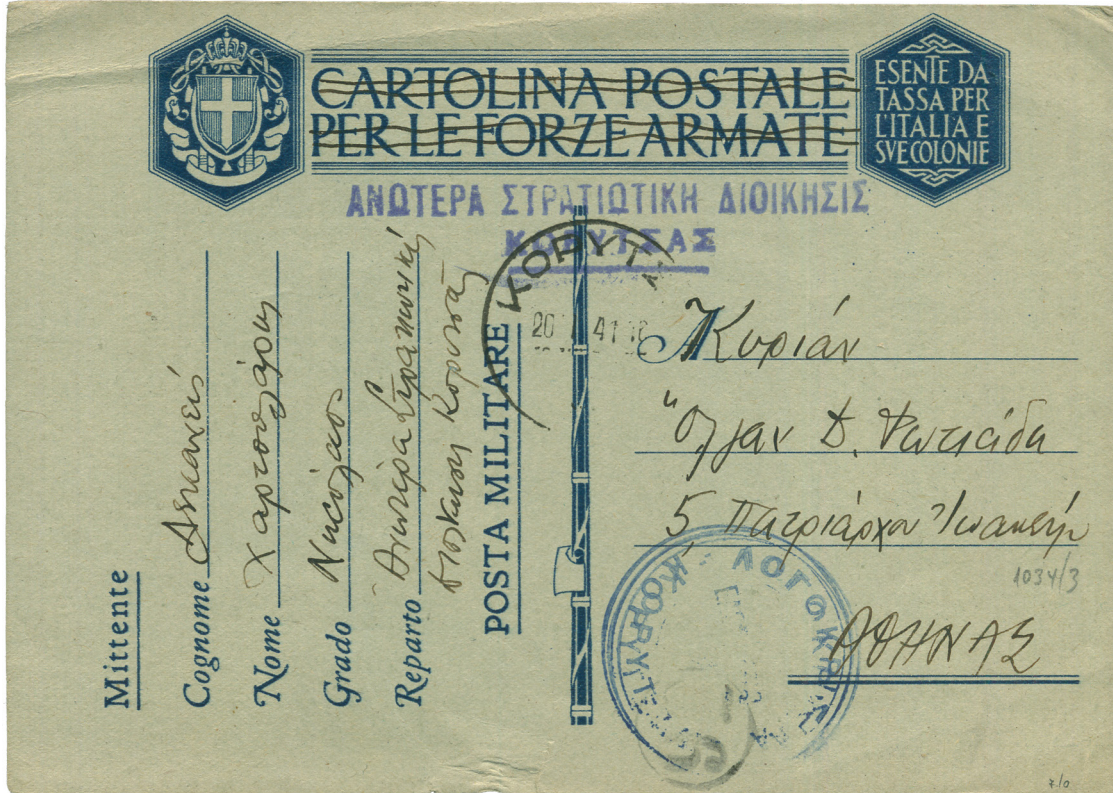 CARTOLINA POSTALE
PER LE FORZE ARMATE
ESENTE DA
TASSA PER
L'ITALIA E
SVE COLONIE
ΑΝΩΤΕΡΑ ΣΤΡΑΤΙΩΤΙΚΗ ΔΙΟΙΚΗΣΙΣ
ΚΟΡΥΤΣΑΣ
ΚΟΡΥΤ
20 41
Mittente
Cognome
Nome
Grado Νικόλαος
Reparto Ανωτέρα Στρατιωτική
διοίκησις Κορυτσάς
POSTA MILITARE
Κυρίαν
Όλγαν Δ. Φωτιάδη
5, Πατριάρχου Ιωακείμ
1034/3
ΑΘΗΝΑΣ
ΛΟΓΟΚΡΙΣΙΑ
ΚΟΡΥΤΣΑΣ